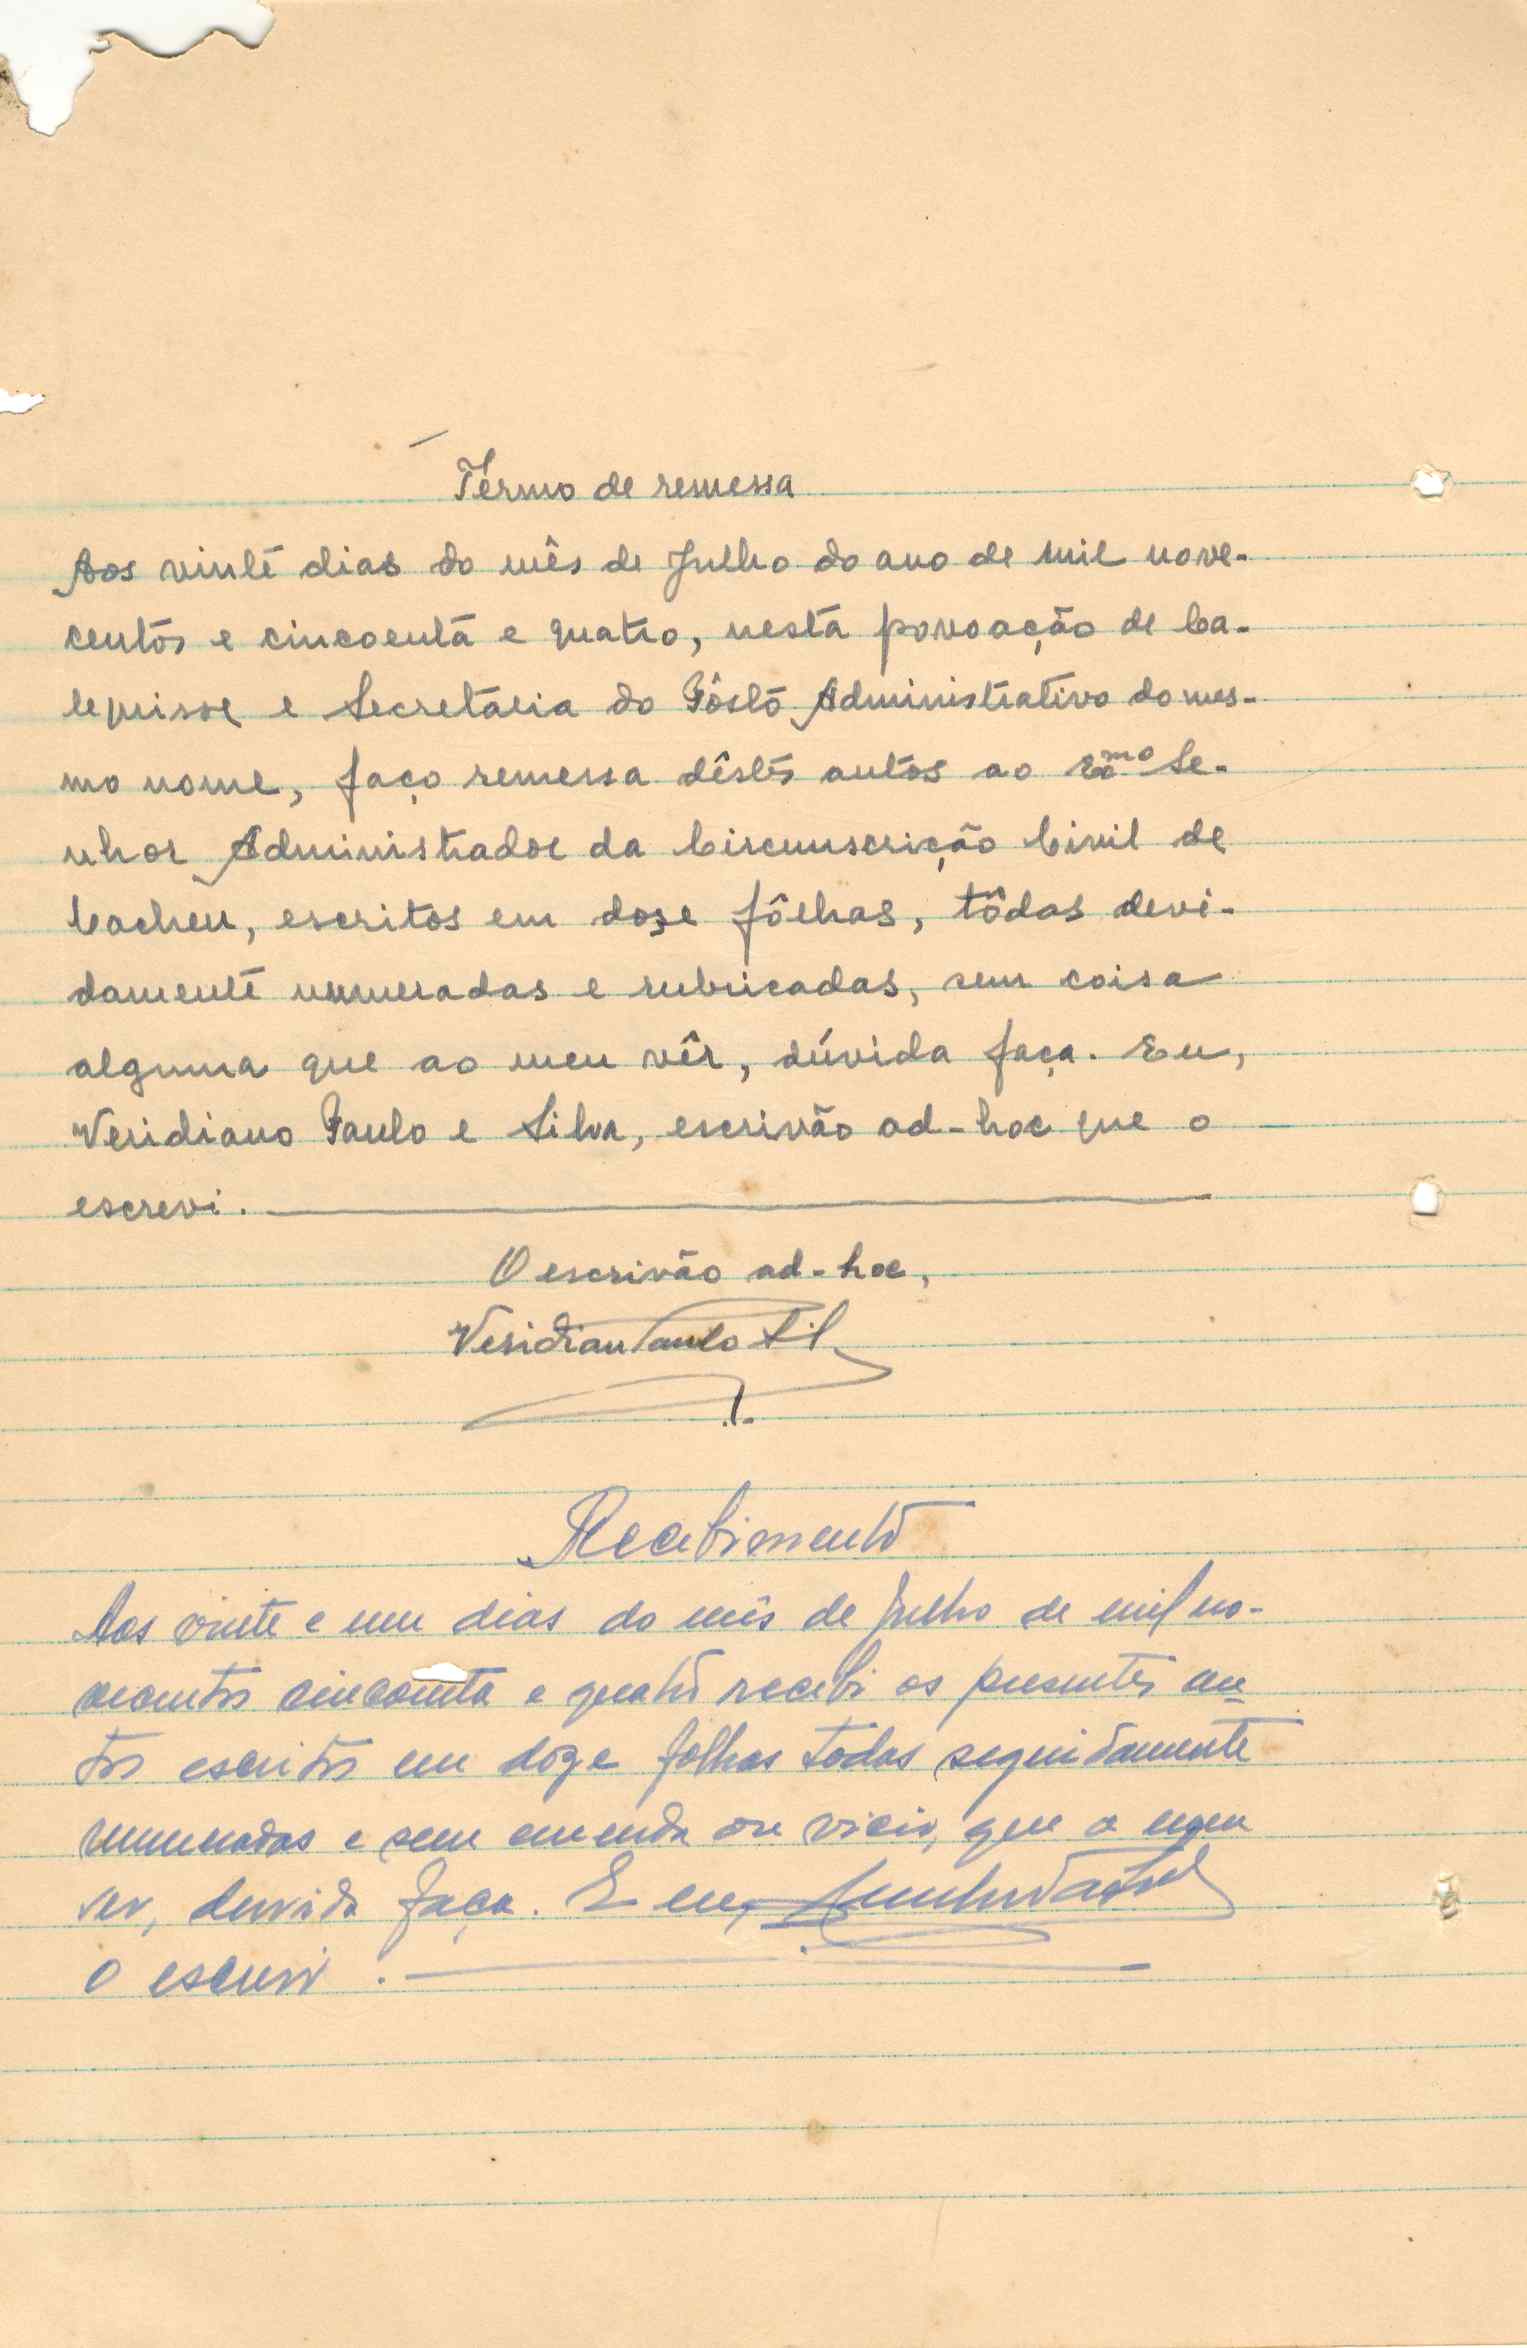 Térmo de remessa
Aos vinte dias do mês de Julho do ano de mil nove-
centos e cincoenta e quatro, nesta povoação de Ca-
lequisse e Secretaria do Pôsto Administrativo do mes-
mo nome, faço remessa dêstes autos ao Exmo Se-
nhor Administrador da Circunscrição Civil de
Cacheu, escritos em doze fôlhas, tôdas devi-
damente numeradas e rubricadas, sem coisa
alguma que ao meu vêr, dúvida faça. Eu,
Veridiano Paulo e Silva, escrivão ad-hoc que o
escrevi.
O escrivão ad-hoc,
Veridian Paulo Sil
Recebimento
Aos vinte e um dias do mês de Julho de mil no-
vecentos cincoenta e quatro recebi os presentes au-
tos escritos em doze folhas todas seguidamente
numeradas e sem emenda ou vicio, que a meu
ver, duvida faça. E eu,
o escrevi.